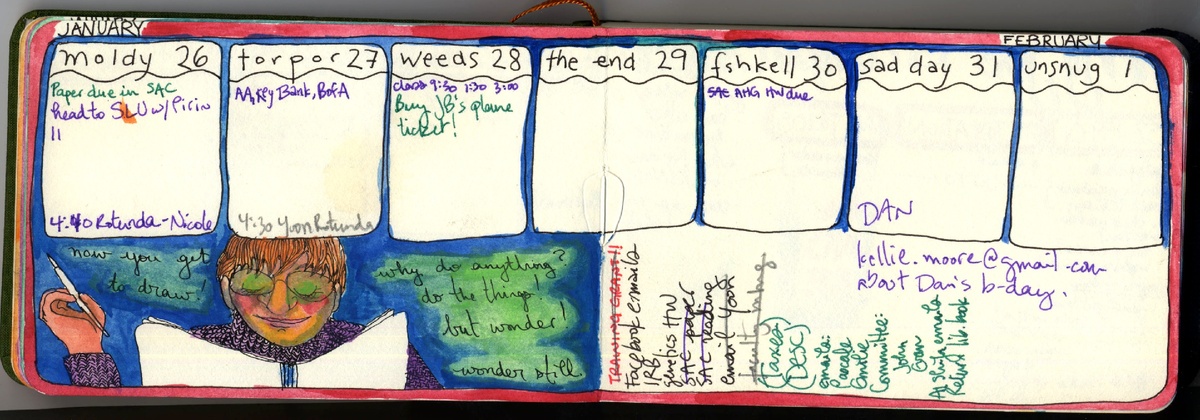 JANUARY
FEBRUARY
moldy 26
Paper due in SAC
head to SLU w/ Pirin
11
4:40 Rotunda - Nicole
torpor 27
AA, Key Bank, BofA
4:30 Yoon Rotunda
weeds 28
class 9:30 1:30 3:00
Buy JB's plane
ticket!
the end 29
fshkell 30
SAE AHG HW due
sad day 31
DAN
unsnug 1
now you get
to draw!
why do anything?
do the thing!
but wonder!
wonder still
TRAINING GRANT!!
Facebook Ermanla
IRB.
genetics HW
SAE paper
SAE reading
email Yoon
faculty
(Taxes)
(Desc)
emails:
Pamela
Emilie
Committee:
John
Evan
emails
Return lib. book
kellie.moore@gmail.com
about Dan's b-day.